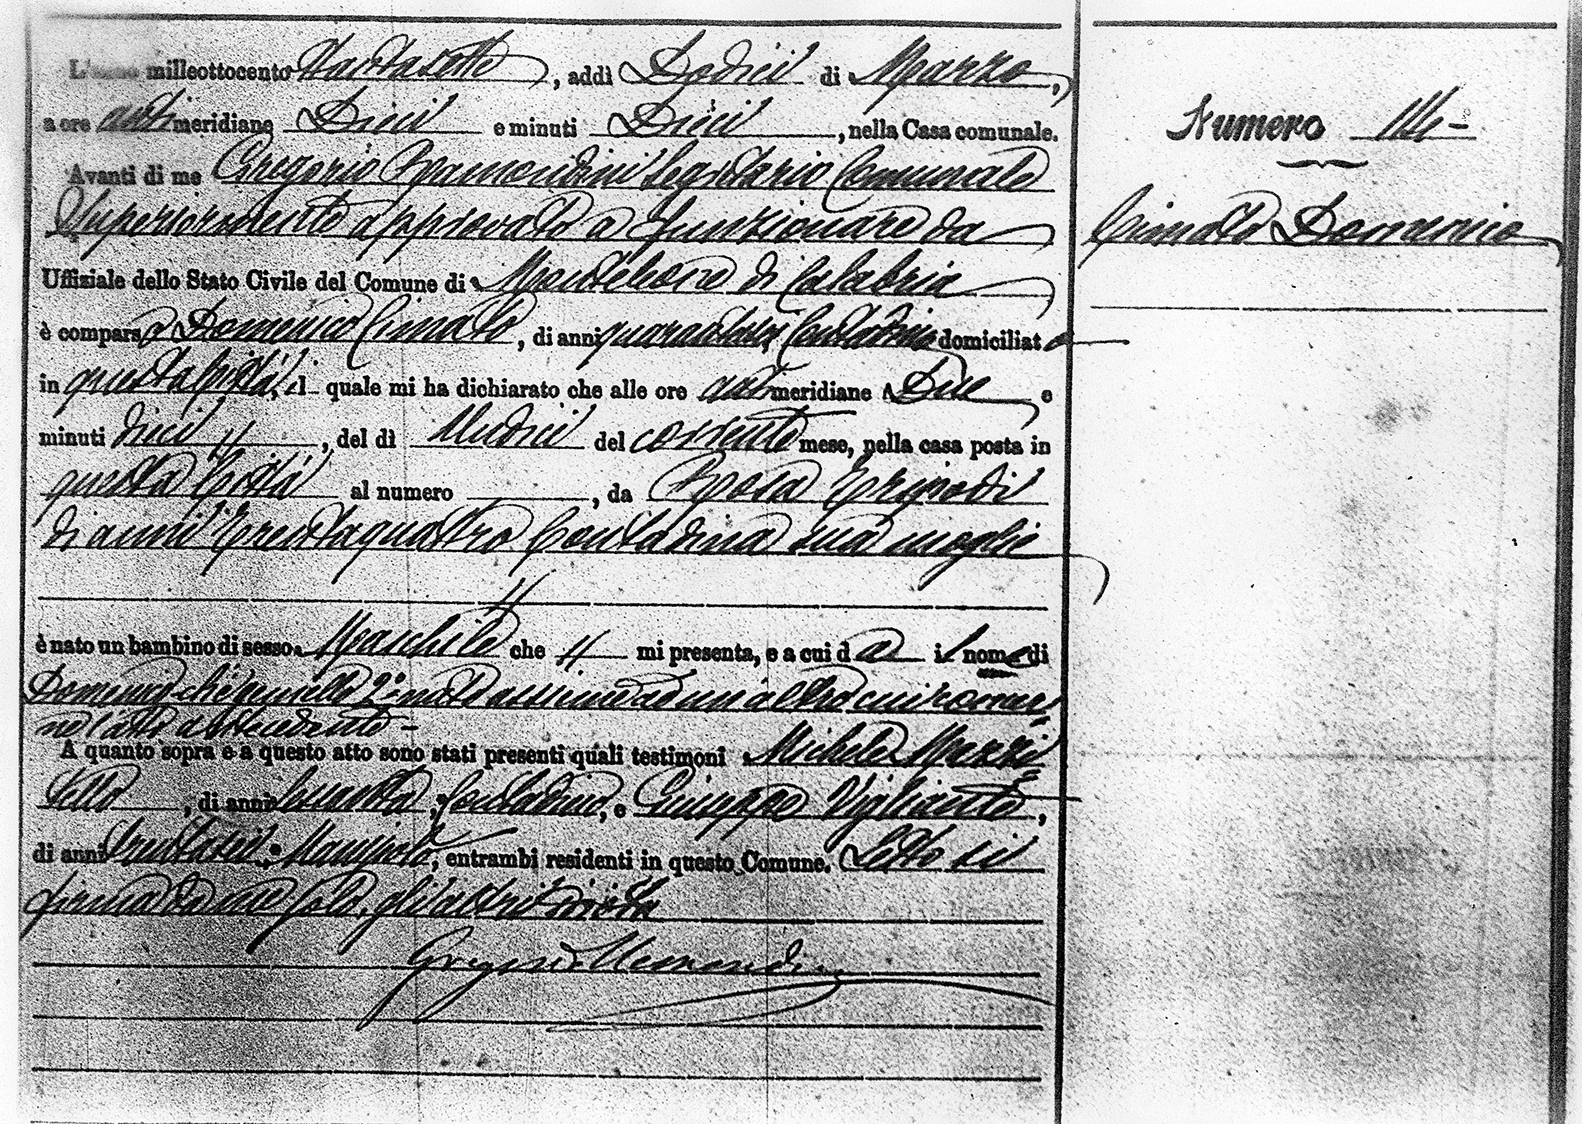 L'anno milleottocento ottantasette, addì Dodici di Marzo,
a ore antimeridiane Dieci e minuti Dieci, nella Casa comunale.
Avanti di me Gregorio Segretario Comunale
Superiormente approvato a funzionare da
Uffiziale dello Stato Civile del Comune di Monteleone di Calabria
è comparso Domenico Cimato, di anni Contadino domiciliato
in questa Città, il quale mi ha dichiarato che alle ore antimeridiane Due e
minuti dieci, del dì Undici del corrente mese, nella casa posta in
questa Città al numero , da Rosa Tripodi
di anni Trentaquattro Contadina sua moglie
è nato un bambino di sesso Maschile che mi presenta, e a cui dà il nome di
Domenico che gemello 2° nato assieme ad un altro cui
l'atto antecedente -
A quanto sopra e a questo atto sono stati presenti quali testimoni Michele Mazzi=
tello, di anni Contadino, e Giuseppe Viglianti,
di anni trentasei, entrambi residenti in questo Comune. Letto si
firma da me solo, gli altri
Numero 114 -
Cimato Domenico